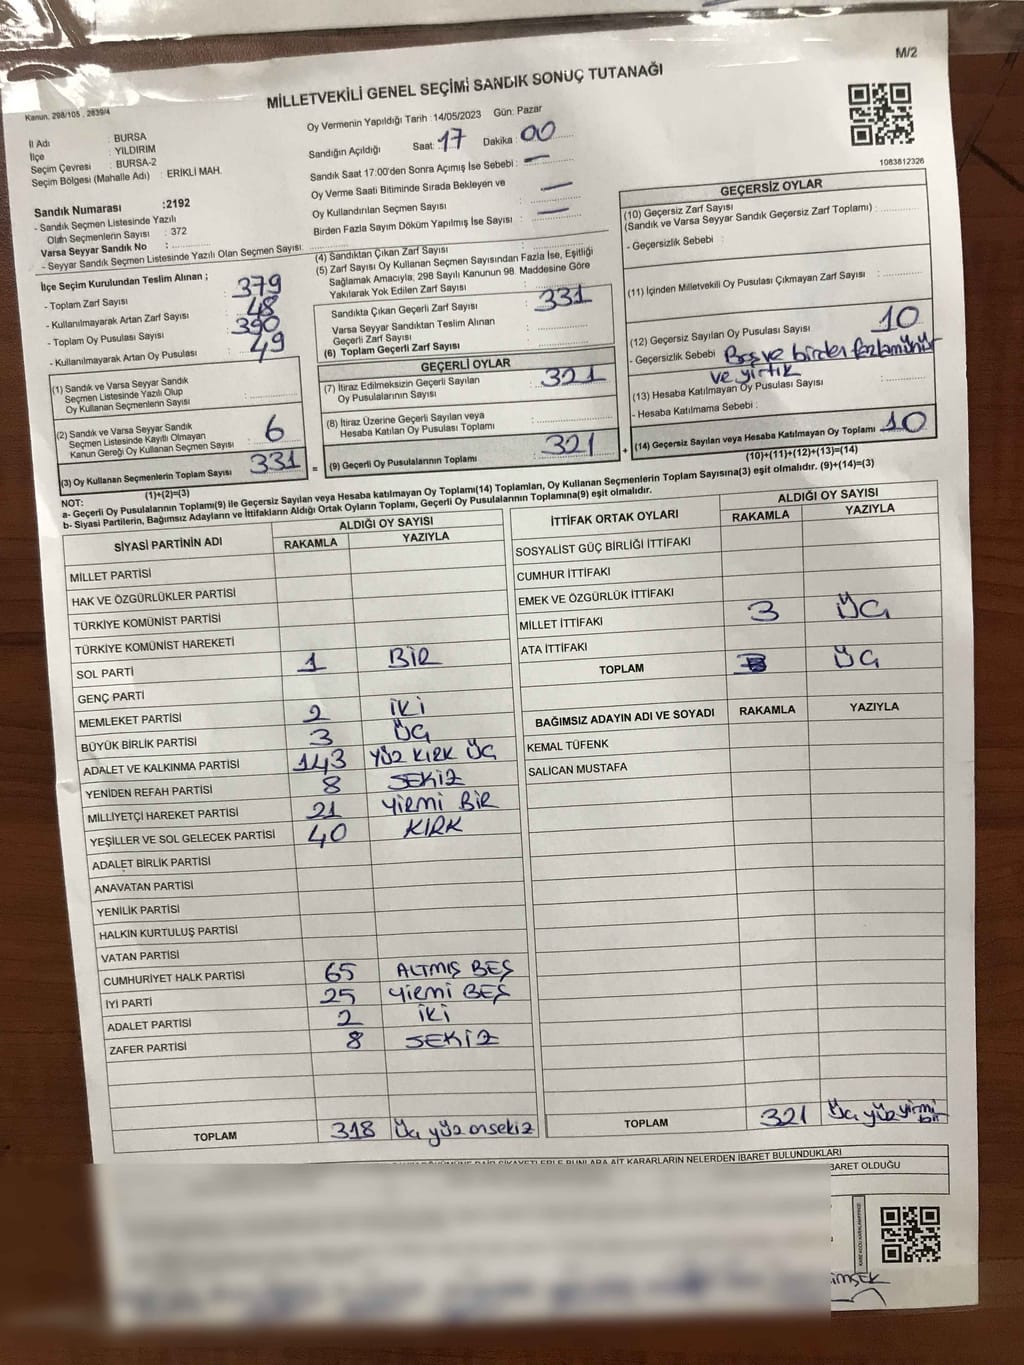 M/2
Kanun. 298/105 , 2839/4
MİLLETVEKİLİ GENEL SEÇİMİ SANDIK SONUÇ TUTANAĞI
İl Adı : BURSA
İlçe : YILDIRIM
Seçim Çevresi : BURSA-2
Seçim Bölgesi (Mahalle Adı) : ERİKLİ MAH.
Oy Vermenin Yapıldığı Tarih : 14/05/2023 Gün: Pazar
Sandığın Açıldığı Saat : 17 Dakika : 00
Sandık Saat 17:00'den Sonra Açımış İse Sebebi : —
Oy Verme Saati Bitiminde Sırada Bekleyen ve
Oy Kullandırılan Seçmen Sayısı : —
Birden Fazla Sayım Döküm Yapılmış İse Sayısı : —
1083812326
Sandık Numarası :2192
- Sandık Seçmen Listesinde Yazılı
Olan Seçmenlerin Sayısı : 372
Varsa Seyyar Sandık No :
- Seyyar Sandık Seçmen Listesinde Yazılı Olan Seçmen Sayısı:
İlçe Seçim Kurulundan Teslim Alınan ;
- Toplam Zarf Sayısı : 379
- Kullanılmayarak Artan Zarf Sayısı : 48
- Toplam Oy Pusulası Sayısı : 390
- Kullanılmayarak Artan Oy Pusulası : 49
(1) Sandık ve Varsa Seyyar Sandık
Seçmen Listesinde Yazılı Olup
Oy Kullanan Seçmenlerin Sayısı :
(2) Sandık ve Varsa Seyyar Sandık
Seçmen Listesinde Kayıtlı Olmayan
Kanun Gereği Oy Kullanan Seçmen Sayısı : 6
(3) Oy Kullanan Seçmenlerin Toplam Sayısı : 331
(1)+(2)=(3)
(4) Sandıktan Çıkan Zarf Sayısı :
(5) Zarf Sayısı Oy Kullanan Seçmen Sayısından Fazla İse, Eşitliği
Sağlamak Amacıyla, 298 Sayılı Kanunun 98. Maddesine Göre
Yakılarak Yok Edilen Zarf Sayısı :
Sandıkta Çıkan Geçerli Zarf Sayısı : 331
Varsa Seyyar Sandıktan Teslim Alınan
Geçerli Zarf Sayısı :
(6) Toplam Geçerli Zarf Sayısı :
GEÇERLİ OYLAR
(7) İtiraz Edilmeksizin Geçerli Sayılan
Oy Pusulalarının Sayısı : 321
(8) İtiraz Üzerine Geçerli Sayılan veya
Hesaba Katılan Oy Pusulası Toplamı :
= (9) Geçerli Oy Pusulalarının Toplamı : 321
GEÇERSİZ OYLAR
(10) Geçersiz Zarf Sayısı
(Sandık ve Varsa Seyyar Sandık Geçersiz Zarf Toplamı) :
- Geçersizlik Sebebi :
(11) İçinden Milletvekili Oy Pusulası Çıkmayan Zarf Sayısı :
(12) Geçersiz Sayılan Oy Pusulası Sayısı : 10
- Geçersizlik Sebebi : Boş ve birden fazla mühür
ve yırtık
(13) Hesaba Katılmayan Oy Pusulası Sayısı :
- Hesaba Katılmama Sebebi :
+ (14) Geçersiz Sayılan veya Hesaba Katılmayan Oy Toplamı : 10
(10)+(11)+(12)+(13)=(14)
NOT:
a- Geçerli Oy Pusulalarının Toplamı(9) ile Geçersiz Sayılan veya Hesaba katılmayan Oy Toplamı(14) Toplamları, Oy Kullanan Seçmenlerin Toplam Sayısına(3) eşit olmalıdır. (9)+(14)=(3)
b- Siyasi Partilerin, Bağımsız Adayların ve İttifakların Aldığı Ortak Oyların Toplamı, Geçerli Oy Pusulalarının Toplamına(9) eşit olmalıdır.
SİYASİ PARTİNİN ADI ALDIĞI OY SAYISI
RAKAMLA YAZIYLA
MİLLET PARTİSİ
HAK VE ÖZGÜRLÜKLER PARTİSİ
TÜRKİYE KOMÜNİST PARTİSİ
TÜRKİYE KOMÜNİST HAREKETİ
SOL PARTİ 1 BİR
GENÇ PARTİ
MEMLEKET PARTİSİ 2 İKİ
BÜYÜK BİRLİK PARTİSİ 3 ÜÇ
ADALET VE KALKINMA PARTİSİ 143 YÜZ KIRK ÜÇ
YENİDEN REFAH PARTİSİ 8 SEKİZ
MİLLİYETÇİ HAREKET PARTİSİ 21 YİRMİ BİR
YEŞİLLER VE SOL GELECEK PARTİSİ 40 KIRK
ADALET BİRLİK PARTİSİ
ANAVATAN PARTİSİ
YENİLİK PARTİSİ
HALKIN KURTULUŞ PARTİSİ
VATAN PARTİSİ
CUMHURİYET HALK PARTİSİ 65 ALTMIŞ BEŞ
İYİ PARTİ 25 YİRMİ BEŞ
ADALET PARTİSİ 2 İKİ
ZAFER PARTİSİ 8 SEKİZ
TOPLAM 318 Üç yüz onsekiz
İTTİFAK ORTAK OYLARI ALDIĞI OY SAYISI
RAKAMLA YAZIYLA
SOSYALİST GÜÇ BİRLİĞİ İTTİFAKI
CUMHUR İTTİFAKI
EMEK VE ÖZGÜRLÜK İTTİFAKI
MİLLET İTTİFAKI 3 ÜÇ
ATA İTTİFAKI
TOPLAM 3 ÜÇ
BAĞIMSIZ ADAYIN ADI VE SOYADI RAKAMLA YAZIYLA
KEMAL TÜFENK
SALİCAN MUSTAFA
TOPLAM 321 Üç yüz yirmi
bir
AİT KARARLARIN NELERDEN İBARET BULUNDUKLARI
İBARET OLDUĞU